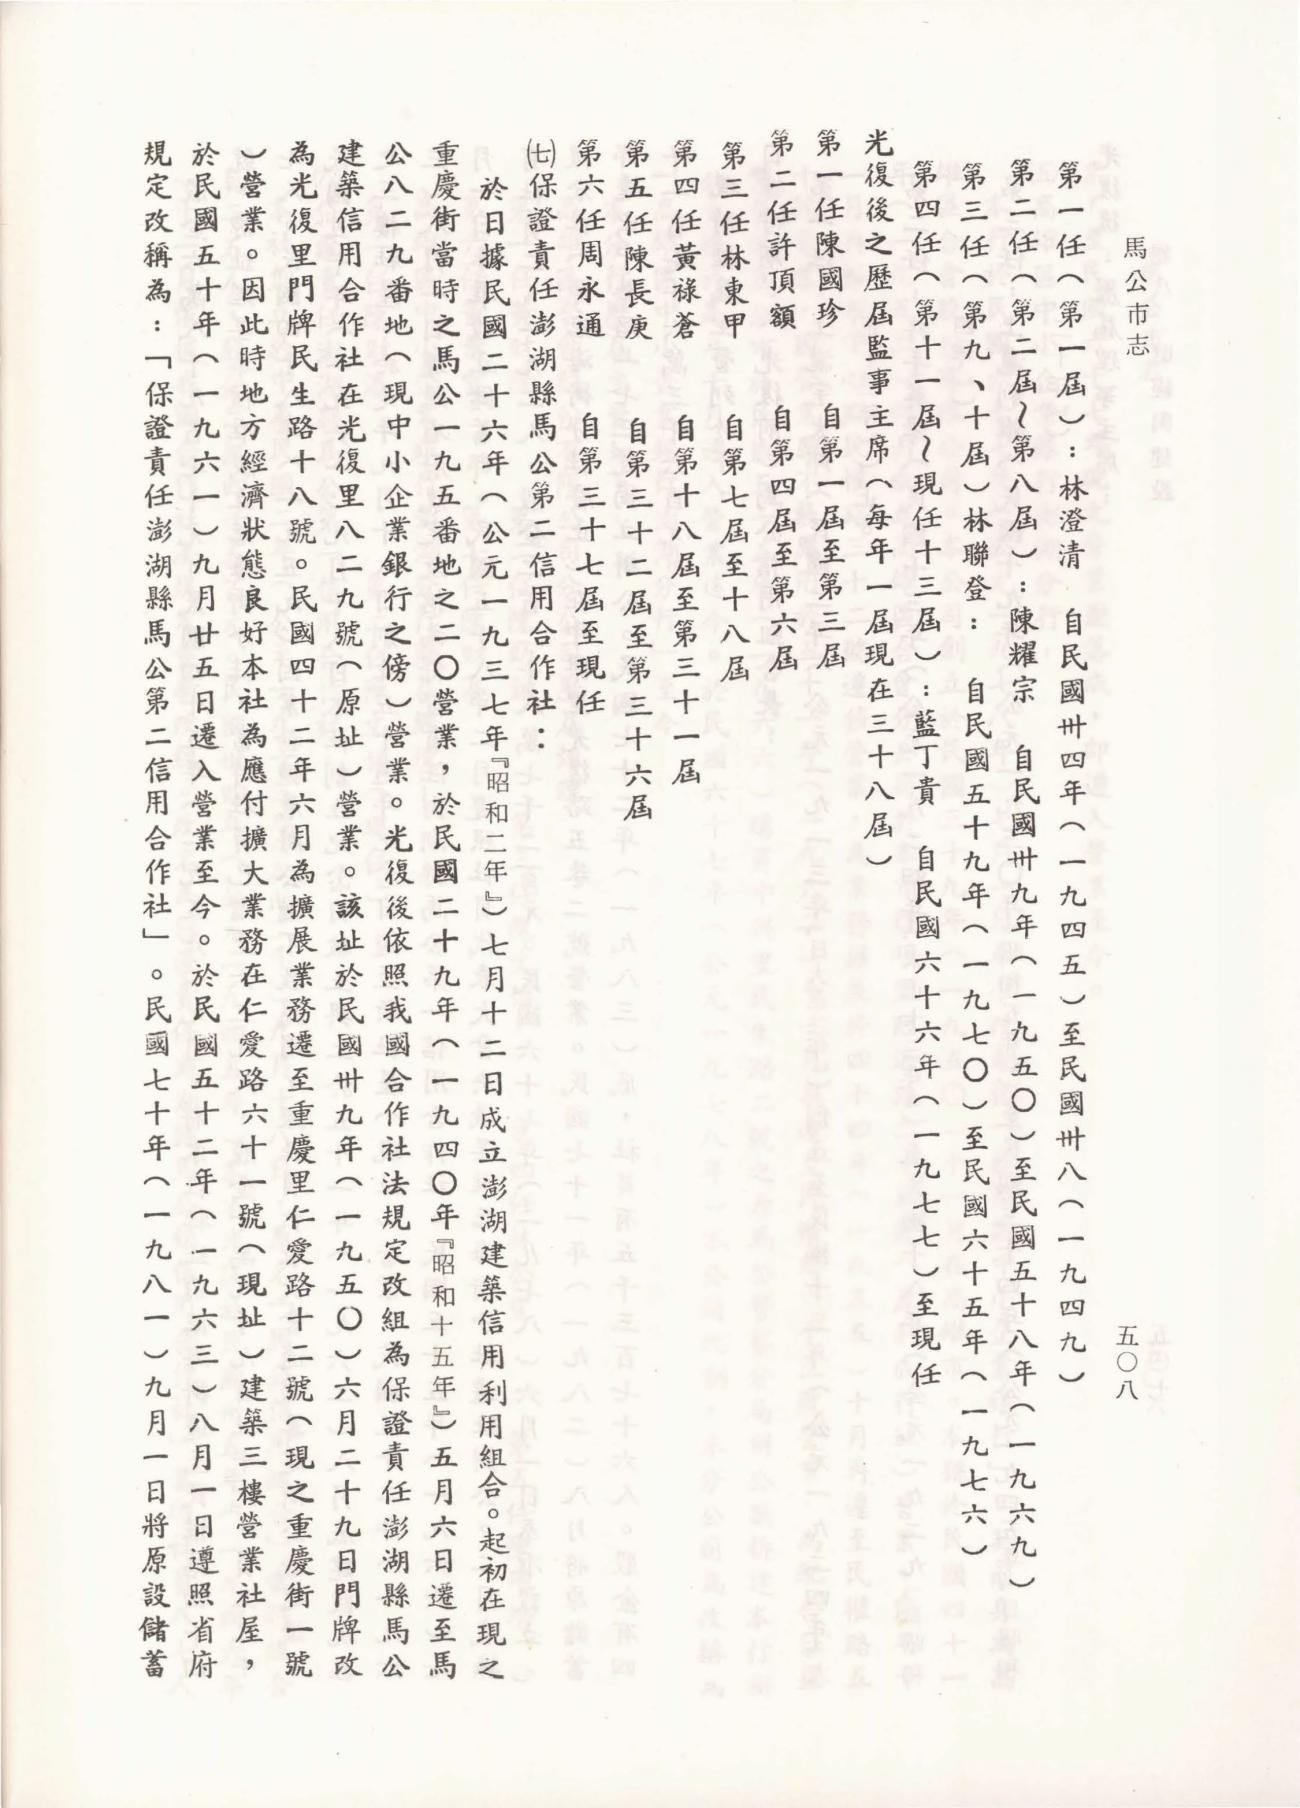 馬公市志
五〇八
第一任（第一屆）：林澄清　自民國卅四年（一九四五）至民國卅八（一九四九）
第二任（第二屆～第八屆）：陳耀宗　自民國卅九年（一九五〇）至民國五十八年（一九六九）
第三任（第九、十屆）林聯登：　自民國五十九年（一九七〇）至民國六十五年（一九七六）
第四任（第十一屆～現任十三屆）：藍丁貴　自民國六十六年（一九七七）至現任
光復後之歷屆監事主席（每年一屆現在三十八屆）
第一任陳國珍　自第一屆至第三屆
第二任許頂額　自第四屆至第六屆
第三任林東甲　自第七屆至十八屆
第四任黃祿蒼　自第十八屆至第三十一屆
第五任陳長庚　自第三十二屆至第三十六屆
第六任周永通　自第三十七屆至現任
㈦保證責任澎湖縣馬公第二信用合作社：
於日據民國二十六年（公元一九三七年『昭和二年』）七月十二日成立澎湖建築信用利用組合。起初在現之
重慶街當時之馬公一九五番地之二〇營業，於民國二十九年（一九四〇年『昭和十五年』）五月六日遷至馬
公八二九番地（現中小企業銀行之傍）營業。光復後依照我國合作社法規定改組為保證責任澎湖縣馬公
建築信用合作社在光復里八二九號（原址）營業。該址於民國卅九年（一九五〇）六月二十九日門牌改
為光復里門牌民生路十八號。民國四十二年六月為擴展業務遷至重慶里仁愛路十二號（現之重慶街一號
）營業。因此時地方經濟狀態良好本社為應付擴大業務在仁愛路六十一號（現址）建築三樓營業社屋，
於民國五十年（一九六一）九月廿五日遷入營業至今。於民國五十二年（一九六三）八月一日遵照省府
規定改稱為：「保證責任澎湖縣馬公第二信用合作社」。民國七十年（一九八一）九月一日將原設儲蓄